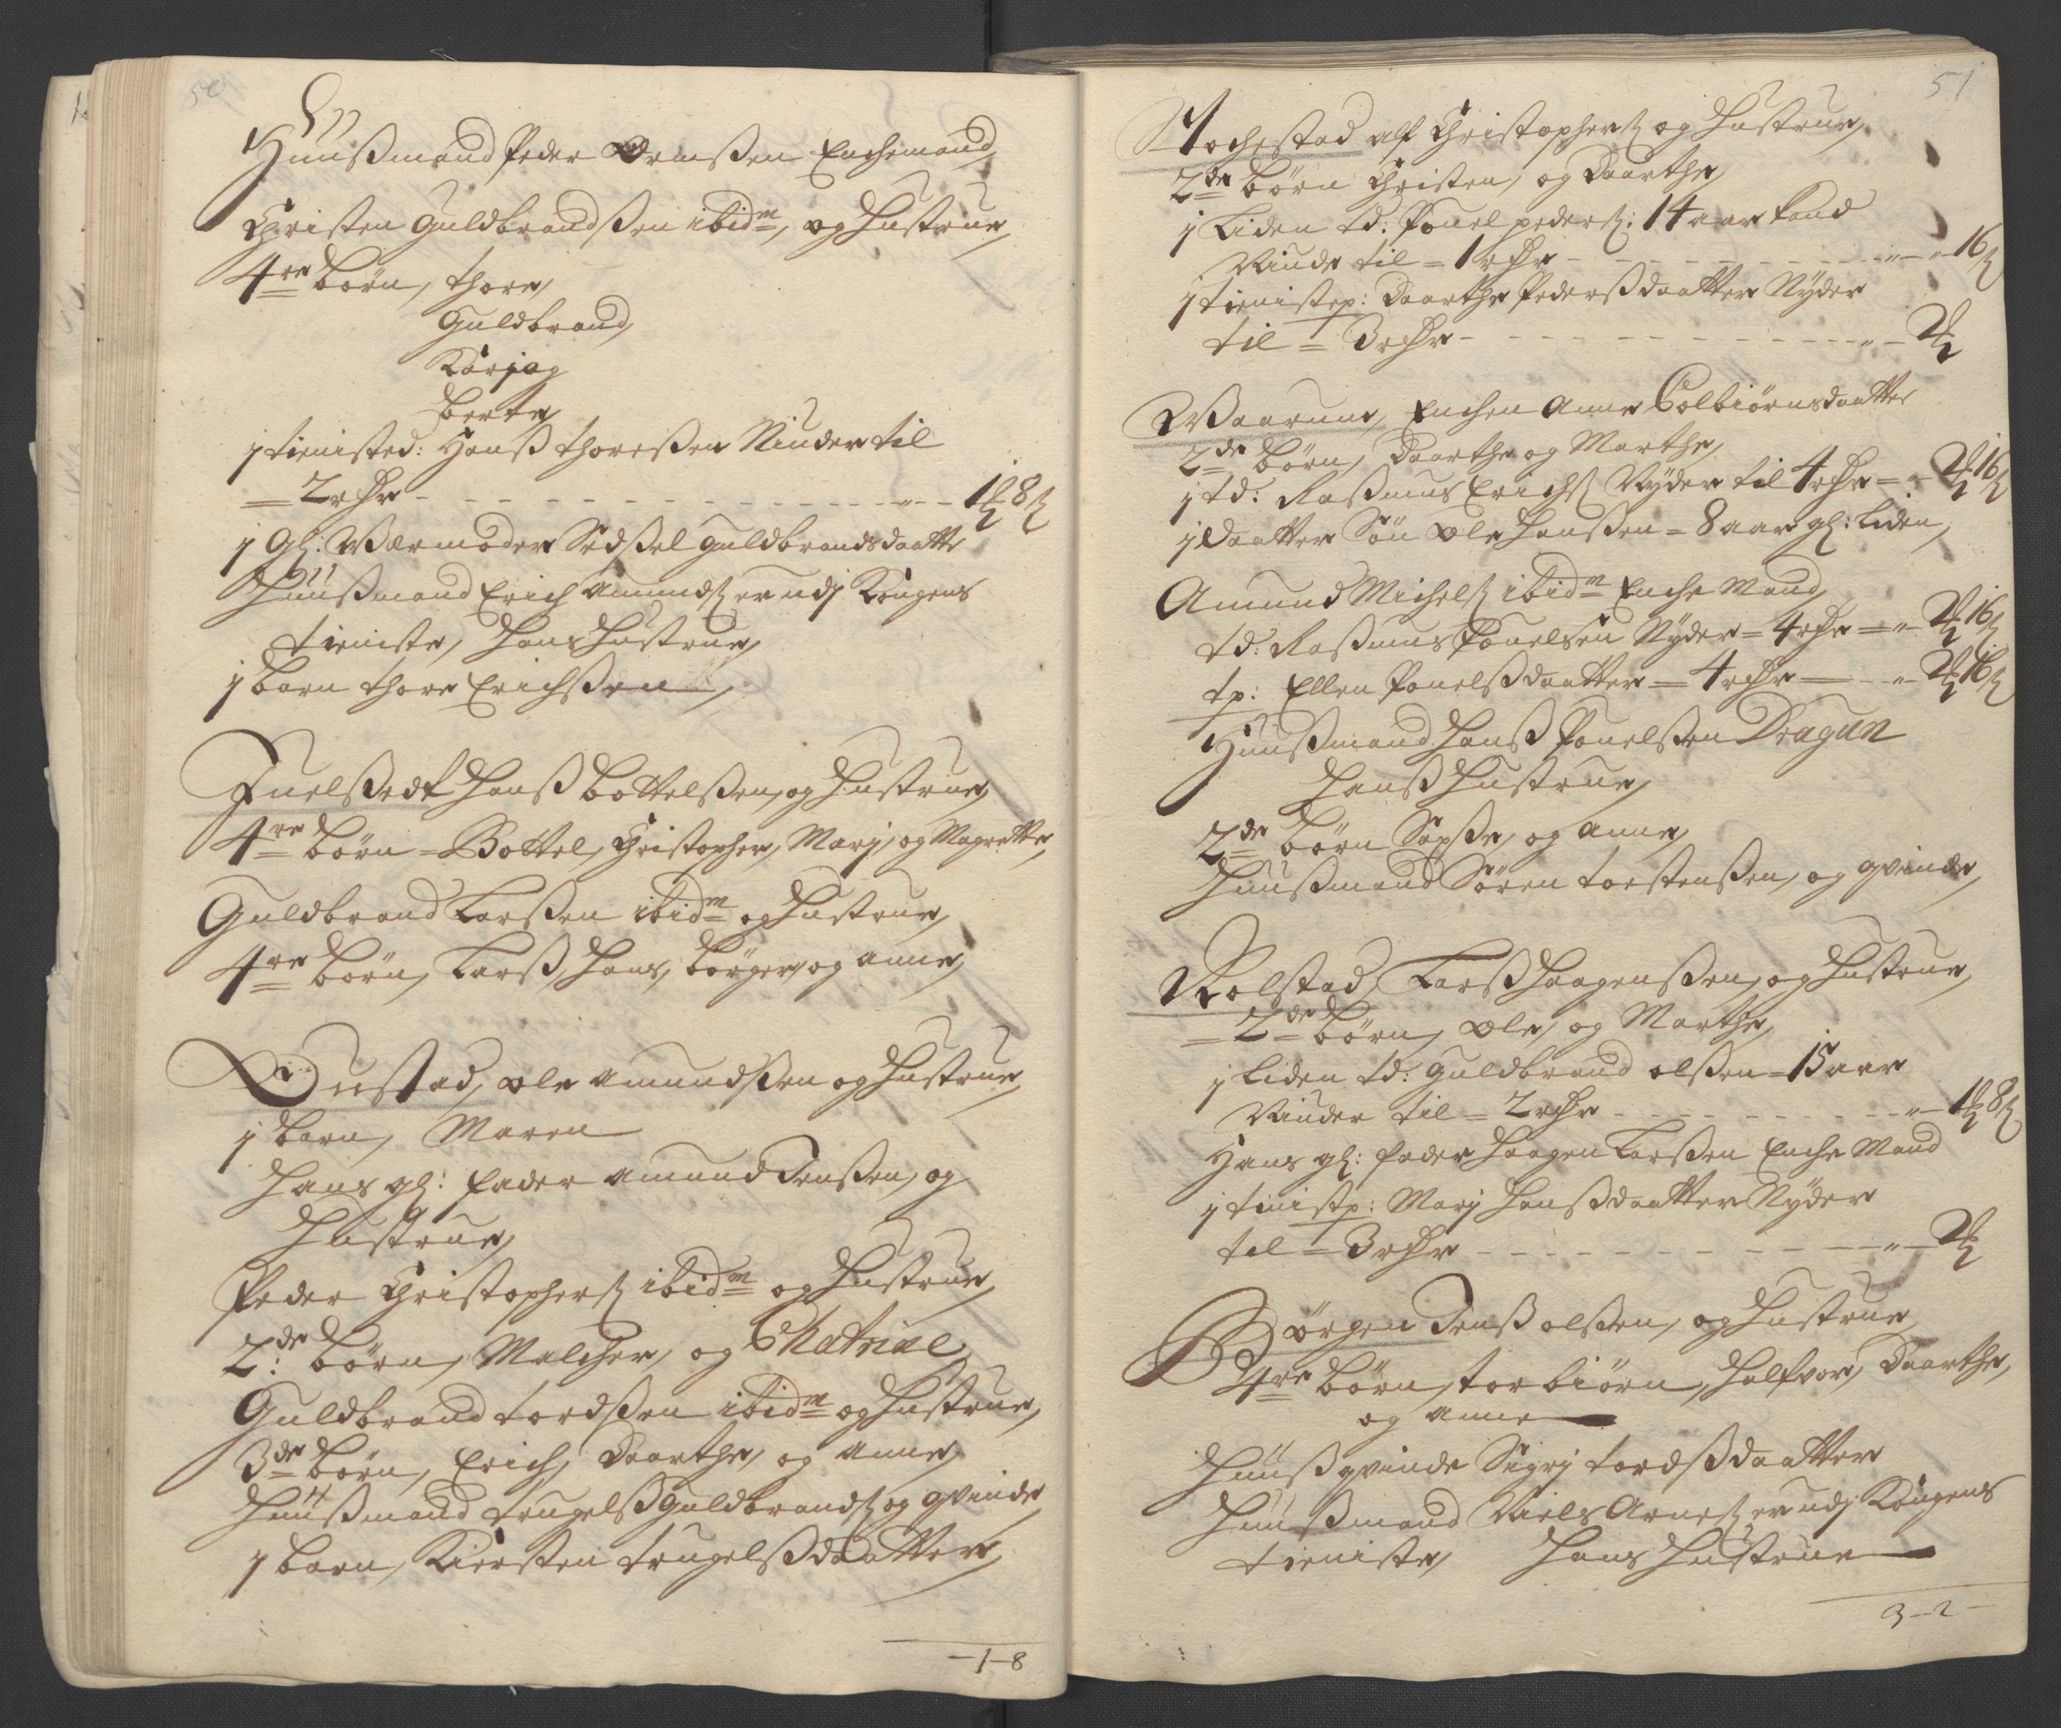 50
Huußmand Peder Ormßen Enchemand,
Christen Guldbrandßen ibidm, og Hustrue,
4re børn, thore,
Guldbrand,
Karj og
berte,
1 tienisted: Hanß thoreßen Niuder til
= 2 rdr - - - 1 8
1 Gl. Værmoder Sedßel Guldbrandsdaatter
Huußmand Erich Amunds er udj Kongens
tieniste, Hans Hustrue,
1 barn thore Erichßen,
Fuelßedt Hanß bottelßen, og Hustrue,
4re børn = Bottel, Christopher, Marj, og Magrette,
Guldbrand Larßen ibidm og Hustrue,
4re børn, Larß, Hans, børger, og anne,
Ole Amundßen og Hustrue,
1 barn, Maren
Hans gl: fader Amund Jenßen, og
Hustrue,
Peder Christophers ibidm og Hustrue,
2de børn, Melcher, og Chatrine,
Guldbrand tordßen ibidm og Hustrue,
3de børn, Erich, Daarthe, og anne,
Huußmand trugelß Guldbrands og qvinde,
1 barn, Kiersten trugelßdaatter,
- 1 - 8
51
alf Christophers og Hustrue,
2de børn Christen, og Daarthe,
1 Liden td: Pouel peders: 14 aar kand
Niude til = 1 rdr - - - 16
1 tienistep: Daarthe Pederßdaatter Nyder
til = 3 rdr - - - 2
Waarum, Enchen Anne Colbiørnsdaatter
2de børn, Daarthe og Marthe,
1 td: Raßmus Erichs Nyder til 4 rdr = 2 16
1 daatter Søn Ole Hanßen = 8 aar gl: Liden,
Amund Michels ibidm Enche Mand,
td: Raßmus Pouelsen Nyder = 4 rdr = 2 16
tp: Ellen Pouelßdaatter = 4 rdr = 2 16
Huußmand Hanß Pouelßen Dragun
Hanß Hustrue,
2de børn Sepße, og anne,
Huußmand Søren torstenßen, og qvinde,
Rolstad, Larß Haagenßen, og Hustrue,
= 2de børn, Ole, og Marthe,
1 Liden td: Guldbrand olßen = 15 aar
Niuder til = 2 rdr - - - 1 8
Hans gl: fader Haagen Larßen Enche Mand
1 tienistp: Marj Hanßdaatter Nyder
til = 3 rdr - - - 2
Børgen Jenß olßen, og Hustrue,
4re børn, torbiørn, Halfvor, Daarthe,
og anne
Huußqvinde Sigrj tordßdaatter
Huußmand Niels Arnes er udj Kongens
tieniste, Hans Hustrue
3 - 2 -